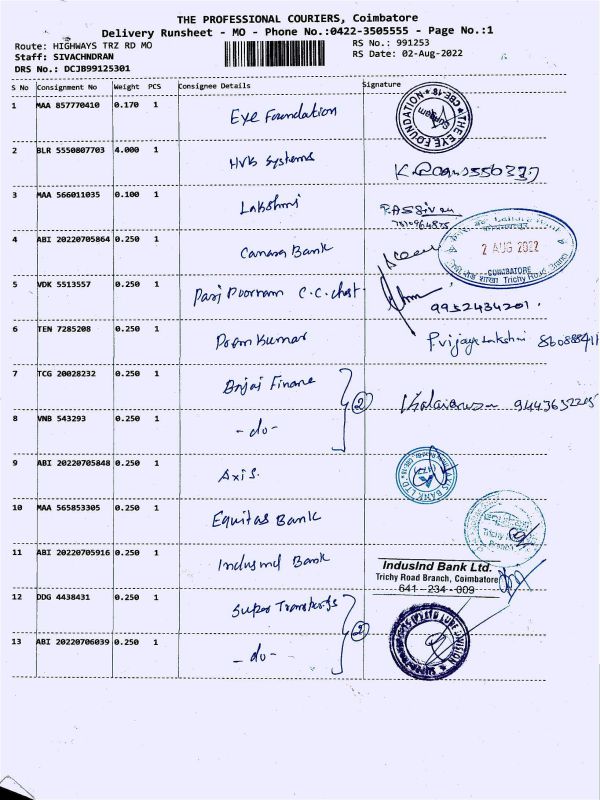 THE PROFESSIONAL COURIERS, Coimbatore
Delivery Runsheet - MO - Phone No.:0422-3505555 - Page No.:1
Route: HIGHWAYS TRZ RD MO
RS No.: 991253
Staff: SIVACHNDRAN
RS Date: 02-Aug-2022
DRS No.: DCJB99125301
S No Consignment No Weight PCS Consignee Details Signature
1 MAA 857770410 0.170 1 Eye Foundation
THE EYE FOUNDATION CBE-18
2 BLR 5550807703 4.000 1 HVB Systems
3 MAA 566011035 0.100 1 Lakshmi
4 ABI 20220705864 0.250 1 Canara Bank
2 AUG 2022
COIMBATORE
5 VDK 5513557 0.250 1
9952434201.
6 TEN 7285208 0.250 1 Prem Kumar P.vijaya Lakshmi
7 TCG 20028232 0.250 1 Finance
2
8 VNB 543293 0.250 1 - do -
9 ABI 20220705848 0.250 1 Axis.
AXIS BANK LTD
10 MAA 565853305 0.250 1 Equitas Bank
11 ABI 20220705916 0.250 1 Indusind Bank
IndusInd Bank Ltd.
Trichy Road Branch, Coimbatore
641 - 234 - 009
12 DDG 4438431 0.250 1 Super Transports
2
13 ABI 20220706039 0.250 1 - do -